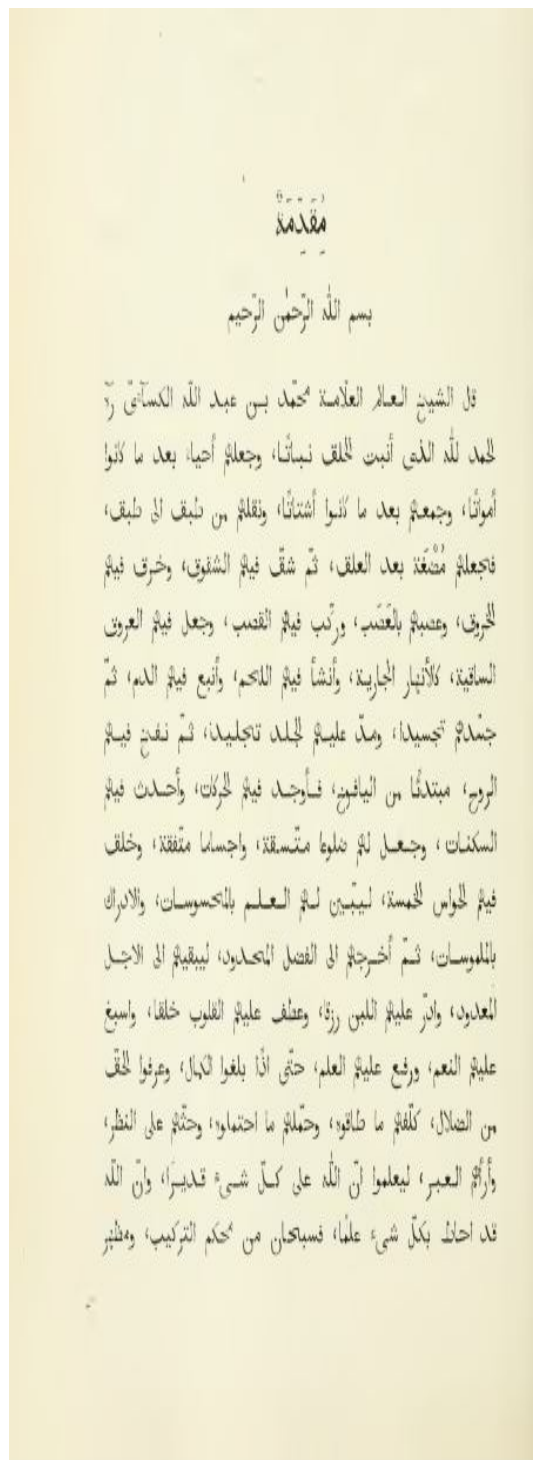 مُقَدِّمَةٌ
بسم اللّٰه الرّحمٰن الرّحيم
قل الشيخ العالم العلّامة محمّد بن عبد اللّه الكسآئىّ رحّه
الحمد للّه الذى أنبت الخلق نباتًا، وجعلهم أحياء بعد ما كانوا
أمواتًا، وجمعهم بعد ما كانوا أشتاتًا، ونقلهم من طبق الى طبق،
فجعلهم مُضْغَة بعد العلق، ثمّ شقّ فيهم الشقوق، وخرق فيهم
الخروق، وعصبهم بالعَصَب، وركّب فيهم القصب، وجعل فيهم العروق
الساقية، كالأنهار الجارية، وأنشأ فيهم اللحم، وأنبع فيهم الدم، ثمّ
جسّدهم تجسيدا، ومدّ عليهم الجلد تجليدا، ثمّ نفخ فيهم
الروح، مبتدئًا من اليافوخ، فأوجد فيهم الحركات، وأحدث فيهم
السكنات، وجعل لهم ضلوعا متّسقة، واجساما متّفقة، وخلق
فيهم الحواس الخمسة، ليبّين لهم العلم بالمحسوسات، والادراك
بالملموسات، ثمّ أخرجهم الى الفضل المحدود، ليبقيهم الى الاجل
المعدود، وادّر عليهم اللبن رزقا، وعطف عليهم القلوب خلقا، واسبغ
عليهم النعم، ورفع عليهم العلم، حتّى اذا بلغوا الكمال، وعرفوا الحقّ
من الضلال، كلّفهم ما طاقوه، وحمّلهم ما احتملوه، وحثّهم على النظر،
وأراهم العبر، ليعلموا انّ اللّٰه على كلّ شىء قديرًا، وانّ اللّه
قد احاط بكلّ شىء علمًا، فسبحان من محكم التركيب، ومظهر